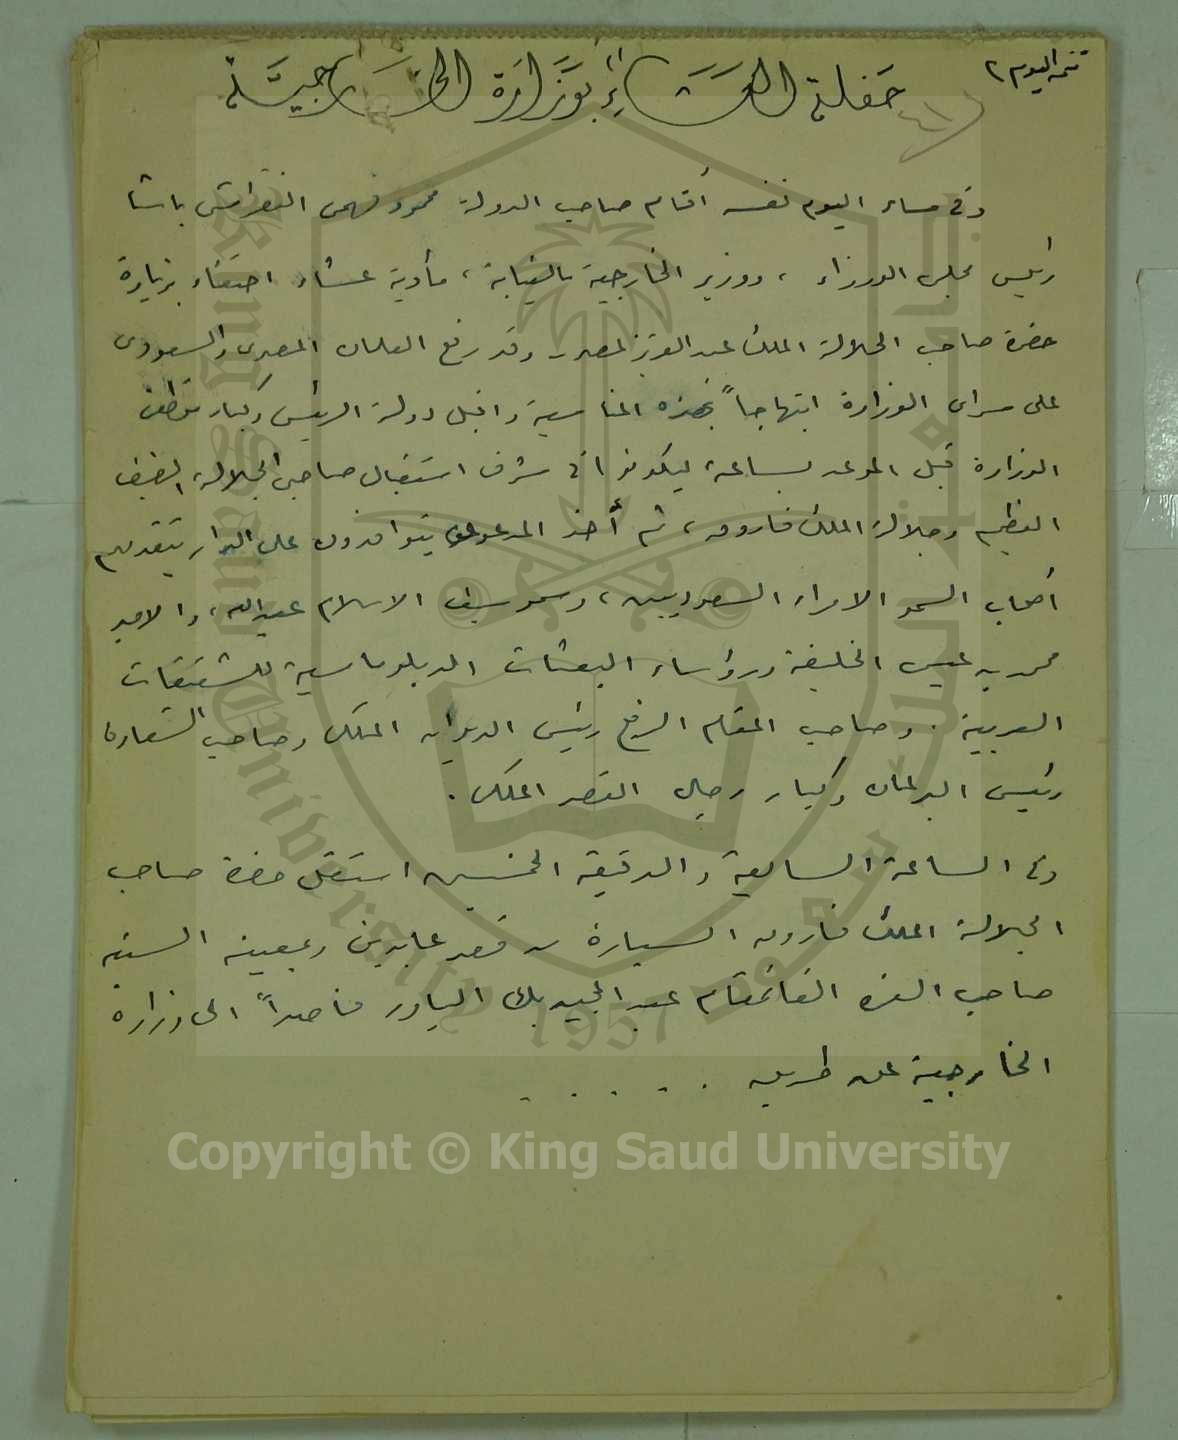 تتمة اليوم ٢
حفلة العشاء بوزارة الخارجية
وفى مساء اليوم نفسه أقام صاحب الدولة محمود فهمى النقراشى باشا
رئيس مجلس الوزراء ، ووزير الخارجية بالنيابة ، مأدبة عشاء احتفاء بزيارة
حضرة صاحب الجلالة الملك عبد العزيز لمصر. وقد رفع العلمان المصرى والسعودى
على سراى الوزارة ابتهاجاً بهذه المناسبة واقبل دولة الرئيس وكبار موظفى
الوزارة قبل الموعد بساعة، ليكونوا فى شرف استقبال صاحبى الجلالة، الضيف
العظيم وجلالة الملك فاروق ، ثم أخذ المدعوون يتوافدون على الدار يتقدمهم
أصحاب السمو الامراء السعوديين ، وسمو سيف الاسلام عبدالله ، والامير
محمد بن عيسى الخليفة ورؤساء البعثات الدبلوماسية للشقيقات
العربية . وصاحب المقام الرفيع رئيس الديوان الملكى وصاحبى السعادة
رئيسى البرلمان وكبار رجال القصر الملكى .
وفى الساعة السابعة والدقيقة الخمسين استقل حضرة صاحب
الجلالة الملك فاروق السيارة من قصر عابدين وبمعيته السنية
صاحب العزة القائمقام عبد المجيد بك الياور قاصداً الى وزارة
الخارجية عن طريق . . . . .
Copyright © King Saud University
King Saud University
جامعة الملك سعود
1957